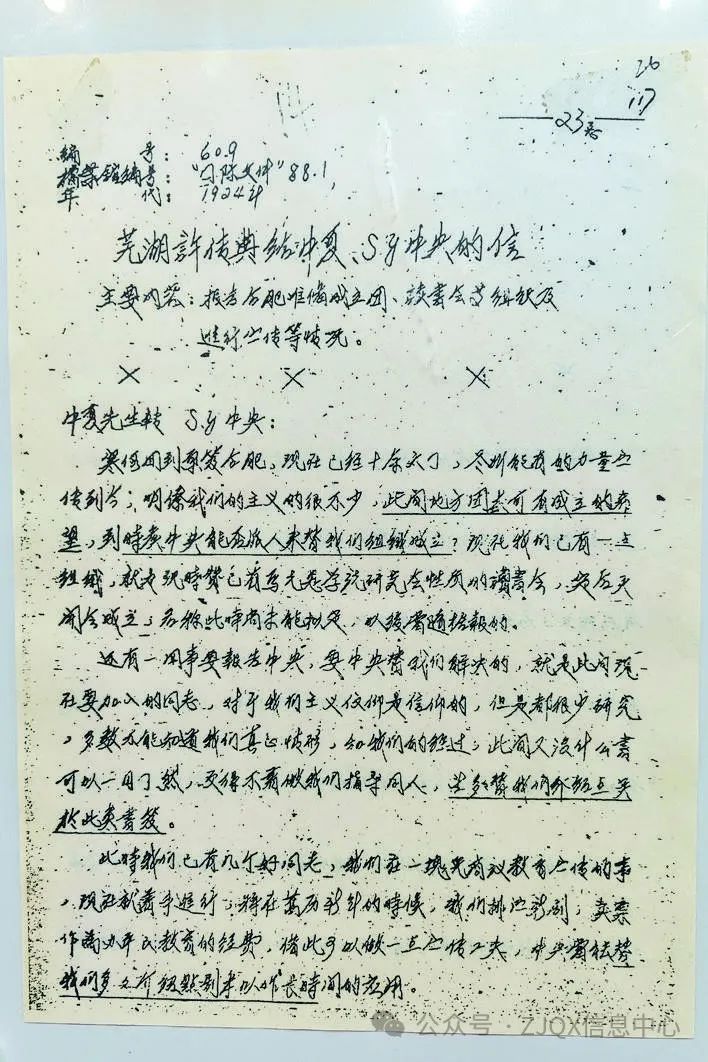 26
117
23
编 号： 609
档案馆编号："国际文件" 88.1
年 代： 1924年
芜湖許传典给中夏、S.y中央的信
主要内容：报告合肥准備成立团、读書会等组织及
进行宣传等情况。
× × ×
中夏先生转 S.y中央：
寒假回到敝笈合肥，现在已经十余天了，尽所能有的力量宣
传到今；明僚我们的主义的很不少，此间地方团大可有成立的希
望，到時袭中央能否派人来替我们组织成立？现在我们已有一点
组织，就是现時赞已有马克思学说研究会性质的讀書会，
開会成立；名称此時尚未能拟定，以後當随拾報的。
还有一同事要報告中央，要中央替我们解决的，就是此间现
在要加入的同志，对于我们主义信仰是信仰的，但是都很少研究
，多数不能知道我们真正情形，和我们的经过；此间又没什么書
可以一目了然，指導同人，替我们介绍
於此类書笈。
此時我们已有几个好同志，我们在一块先商议教育宣传的事
，现在就着手进行；将在舊历新年的時候，我们排演新剧，卖票
作為办平民教育的经费，借此可以做一点宣传工夫，中央當能替
我们多多介绍點剧本以作長時间的应用。
公众号·ZJQX信息中心